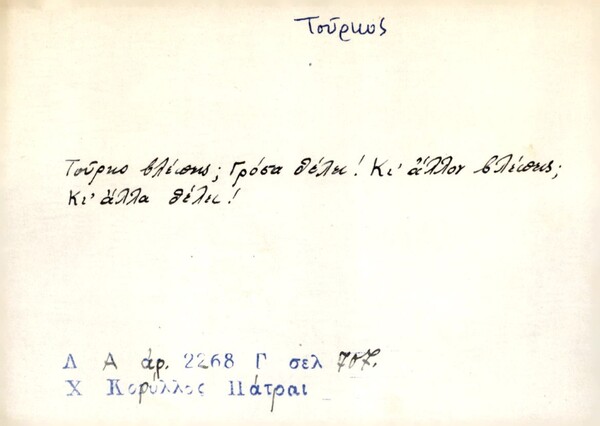 Τοῦρκος
Τοῦρκο βλέπεις; Γρόσα θέλει! Κι' ἄλλον βλέπεις;
Κι' ἄλλα θέλει!
Λ Α ἀρ. 2268 Γ σελ 707.
Χ Κορύλλος Πάτραι